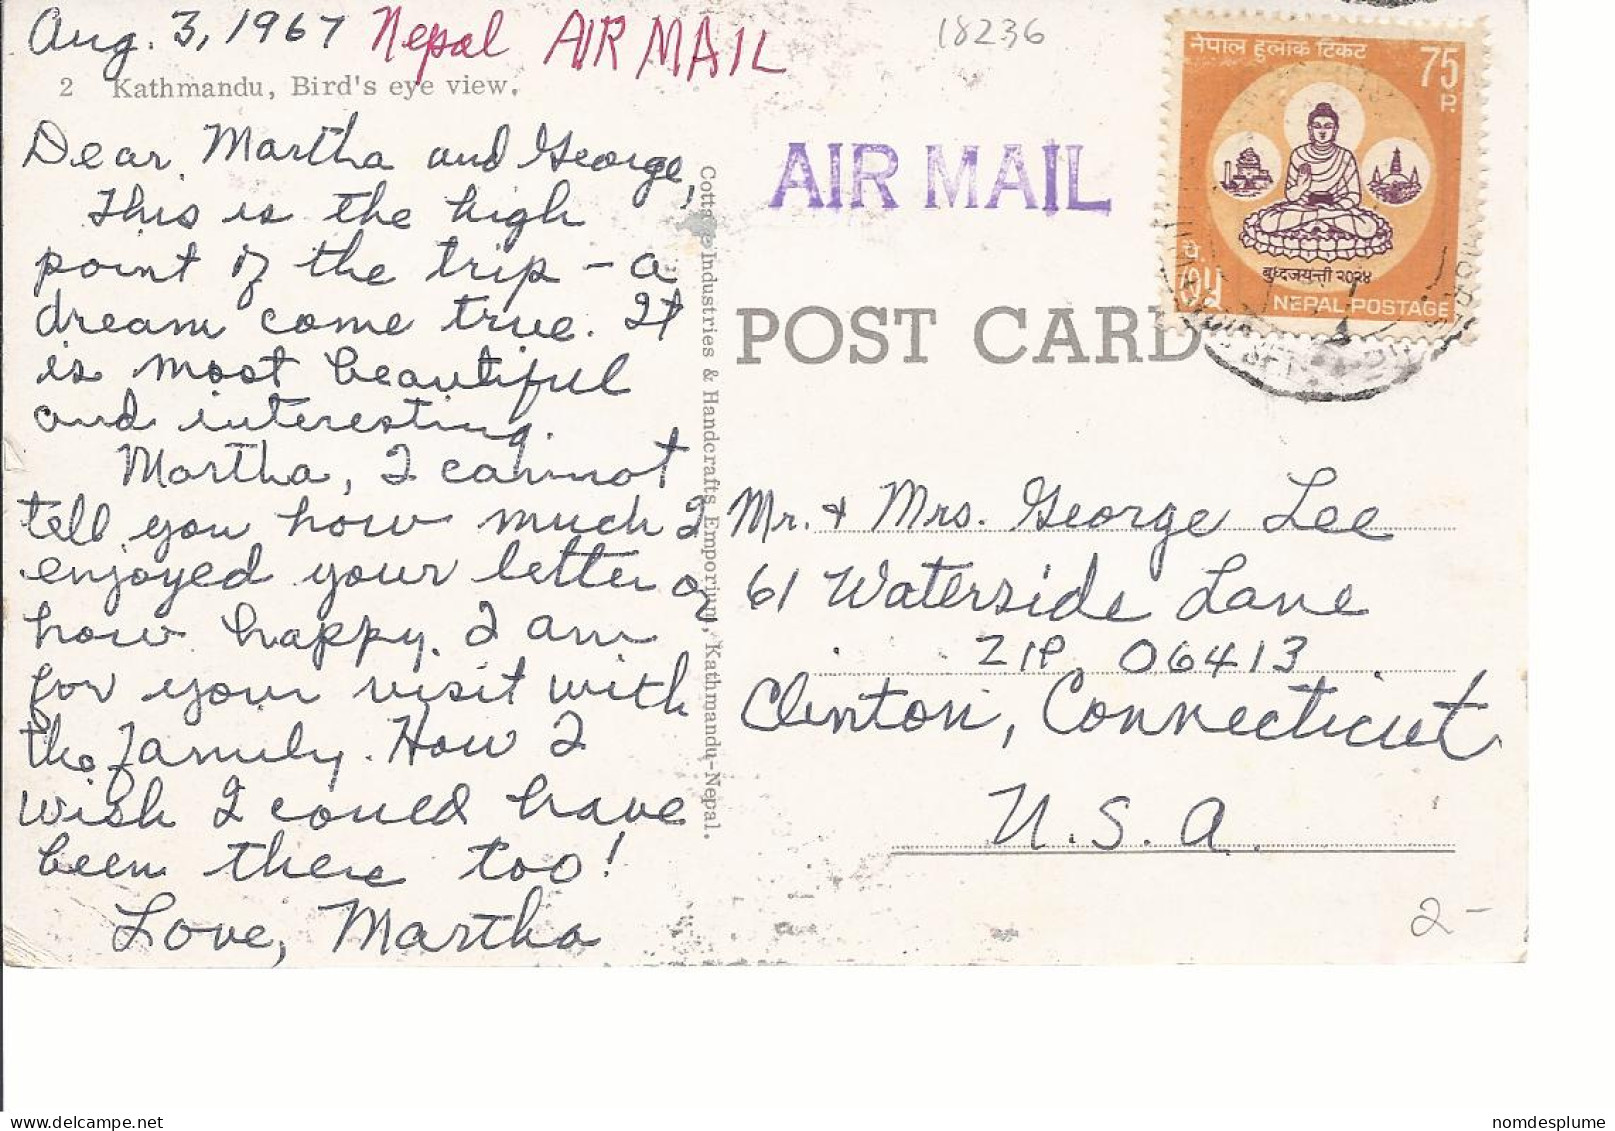 Aug. 3, 1967 Nepal AIR MAIL
18236
2 Kathmandu, Bird's eye view.
Dear Martha and George,
This is the high
point of the trip - a
dream come true. It
is most beautiful
and interesting.
Martha, I cannot
tell you how much I
enjoyed your letter or
how happy I am
for your visit with
the family. How I
wish I could have
been there too!
Love, Martha
Cottage Industries & Handcrafts Emporium, Kathmandu-Nepal.
AIR MAIL
POST CARD
नेपाल हुलाक टिकट
75
P.
बुध्दजयन्ती २०२४
पै.
७५
NEPAL POSTAGE
Mr. + Mrs. George Lee
61 Waterside Lane
ZIP 06413
Clinton, Connecticut
U.S.A.
2-
nomdesplume